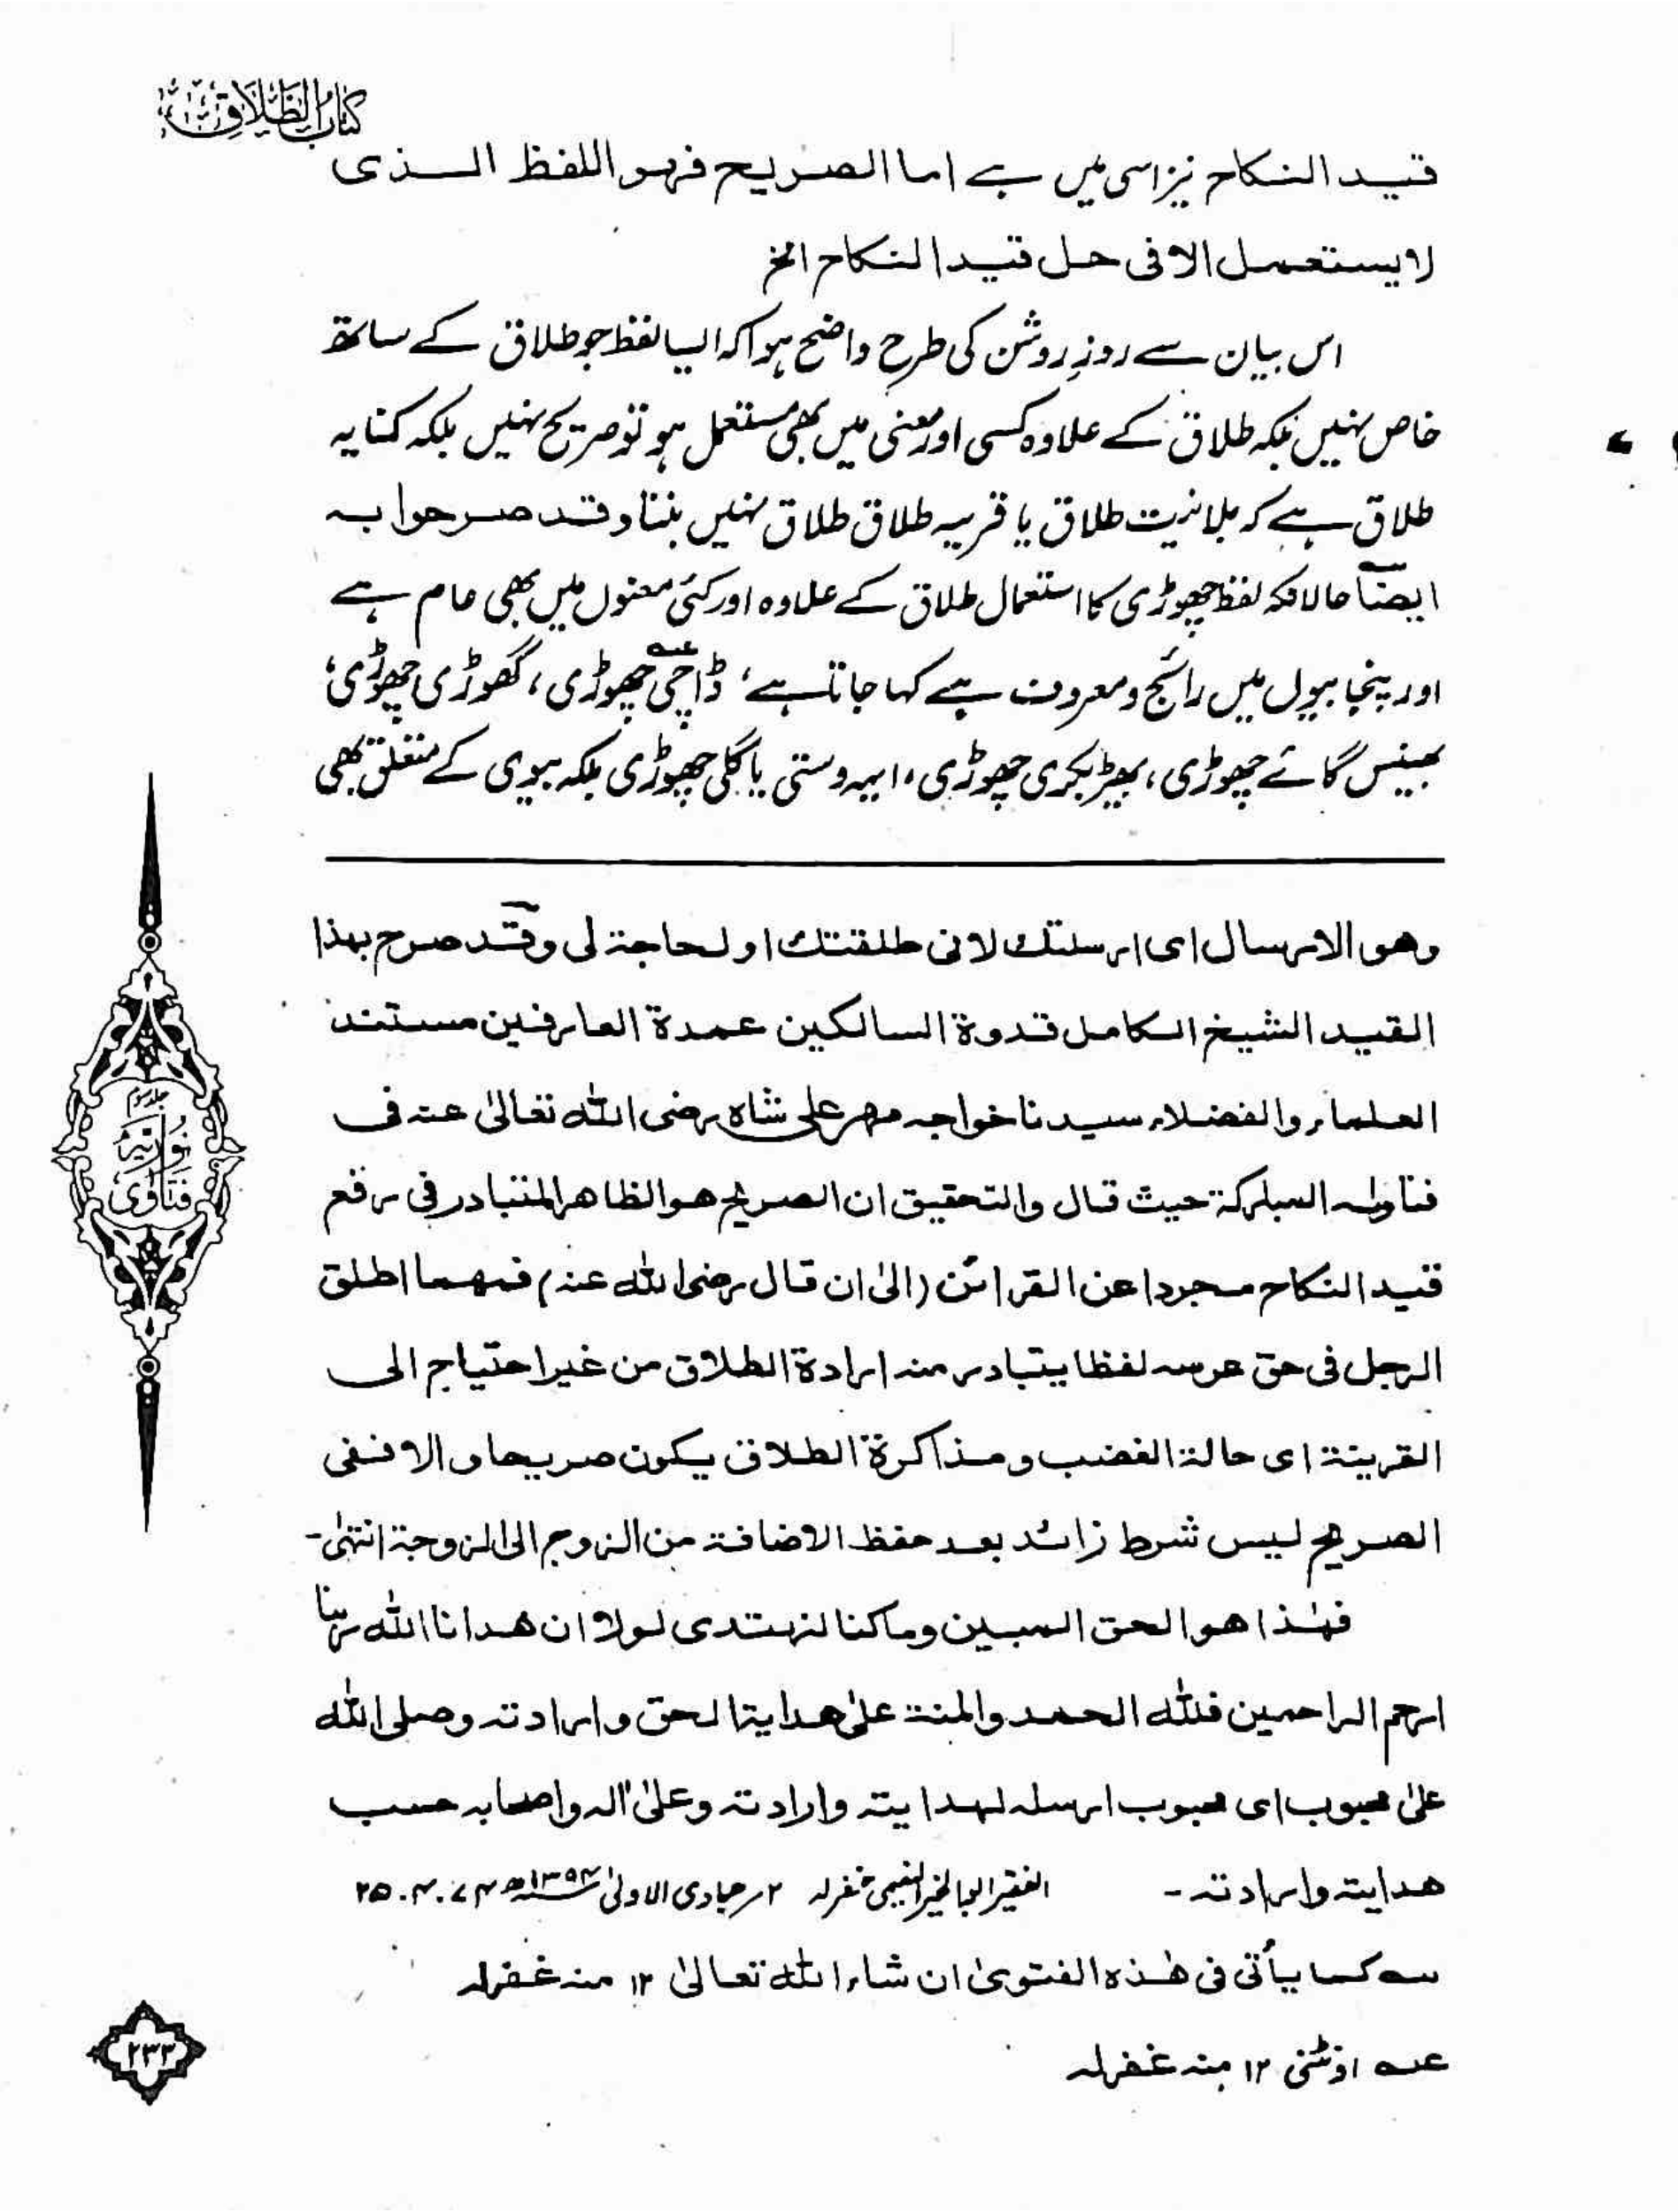 کتاب الطلاق
قید النکاح نیز اسی میں ہے اما الصریح فہو اللفظ الذی
لا یستعمل الا فی حل قید النکاح الخ
اس بیان سے روزِ روشن کی طرح واضح ہوا کہ ایسا لفظ جو طلاق کے ساتھ
خاص نہیں بلکہ طلاق کے علاوہ کسی اور معنی میں بھی مستعمل ہو تو صریح نہیں بلکہ کنایہ
طلاق ہے کہ بلا نیت طلاق یا قرینہ طلاق طلاق نہیں بنتا وقد صرحوا بہ
ایضاً حالانکہ لفظ چھوڑی کا استعمال طلاق کے علاوہ اور کئی معنوں میں بھی عام ہے
اور پنجابیوں میں رائج و معروف ہے کہا جاتا ہے، ڈاچی عہ چھوڑی، گھوڑی چھوڑی،
بھینس گائے چھوڑی، بھیڑ بکری چھوڑی، ایہہ وستی یا گلی چھوڑی بلکہ بیوی کے متعلق بھی
وھو الارسال ای ارسلتک لانی طلقتک او لحاجۃ لی وقد صرح بہذا
القید الشیخ الکامل قدوۃ السالکین عمدۃ العارفین مستند
العلماء والفضلاء سیدنا خواجہ مہر علی شاہ رضی اللہ تعالیٰ عنہ فی
فتاوٰیہ المبارکۃ حیث قال والتحقیق ان الصریح ھو الظاھر المتبادر فی رفع
قید النکاح مجردا عن القرائن (الیٰ ان قال رضی اللہ عنہ) فمہما اطلق
الرجل فی حق عرسہ لفظا یتبادر منہ ارادۃ الطلاق من غیر احتیاج الی
القرینۃ ای حالۃ الغضب ومذاکرۃ الطلاق یکون صریحا والا ففی
الصریح لیس شرط زائد بعد حفظ الاضافۃ من الزوج الی الزوجۃ انتہیٰ۔
فہٰذا ھو الحق المبین وما کنا لنہتدی لولا ان ھدانا اللہ ربنا
ارحم الراحمین فللہ الحمد والمنۃ علیٰ ھدایۃ الحق وارادتہ وصلی اللہ
علیٰ محبوب ای محبوب ارسلہ لہدایتہ وارادتہ وعلیٰ اٰلہ واصحابہ حسب
ھدایتہ وارادتہ۔ الفقیر ابو الخیر النعیمی غفرلہ ۲ر جمادی الاولیٰ ۱۳۹۴ھ ۷۴۔۴۔۲۵
سہ کما یأتی فی ھٰذہ الفتویٰ ان شاء اللہ تعالیٰ ۱۲ منہ غفرلہ
عہ اونٹنی ۱۲ منہ غفرلہ
جلد سوم
فتاویٰ نوریہ
۲۳۳